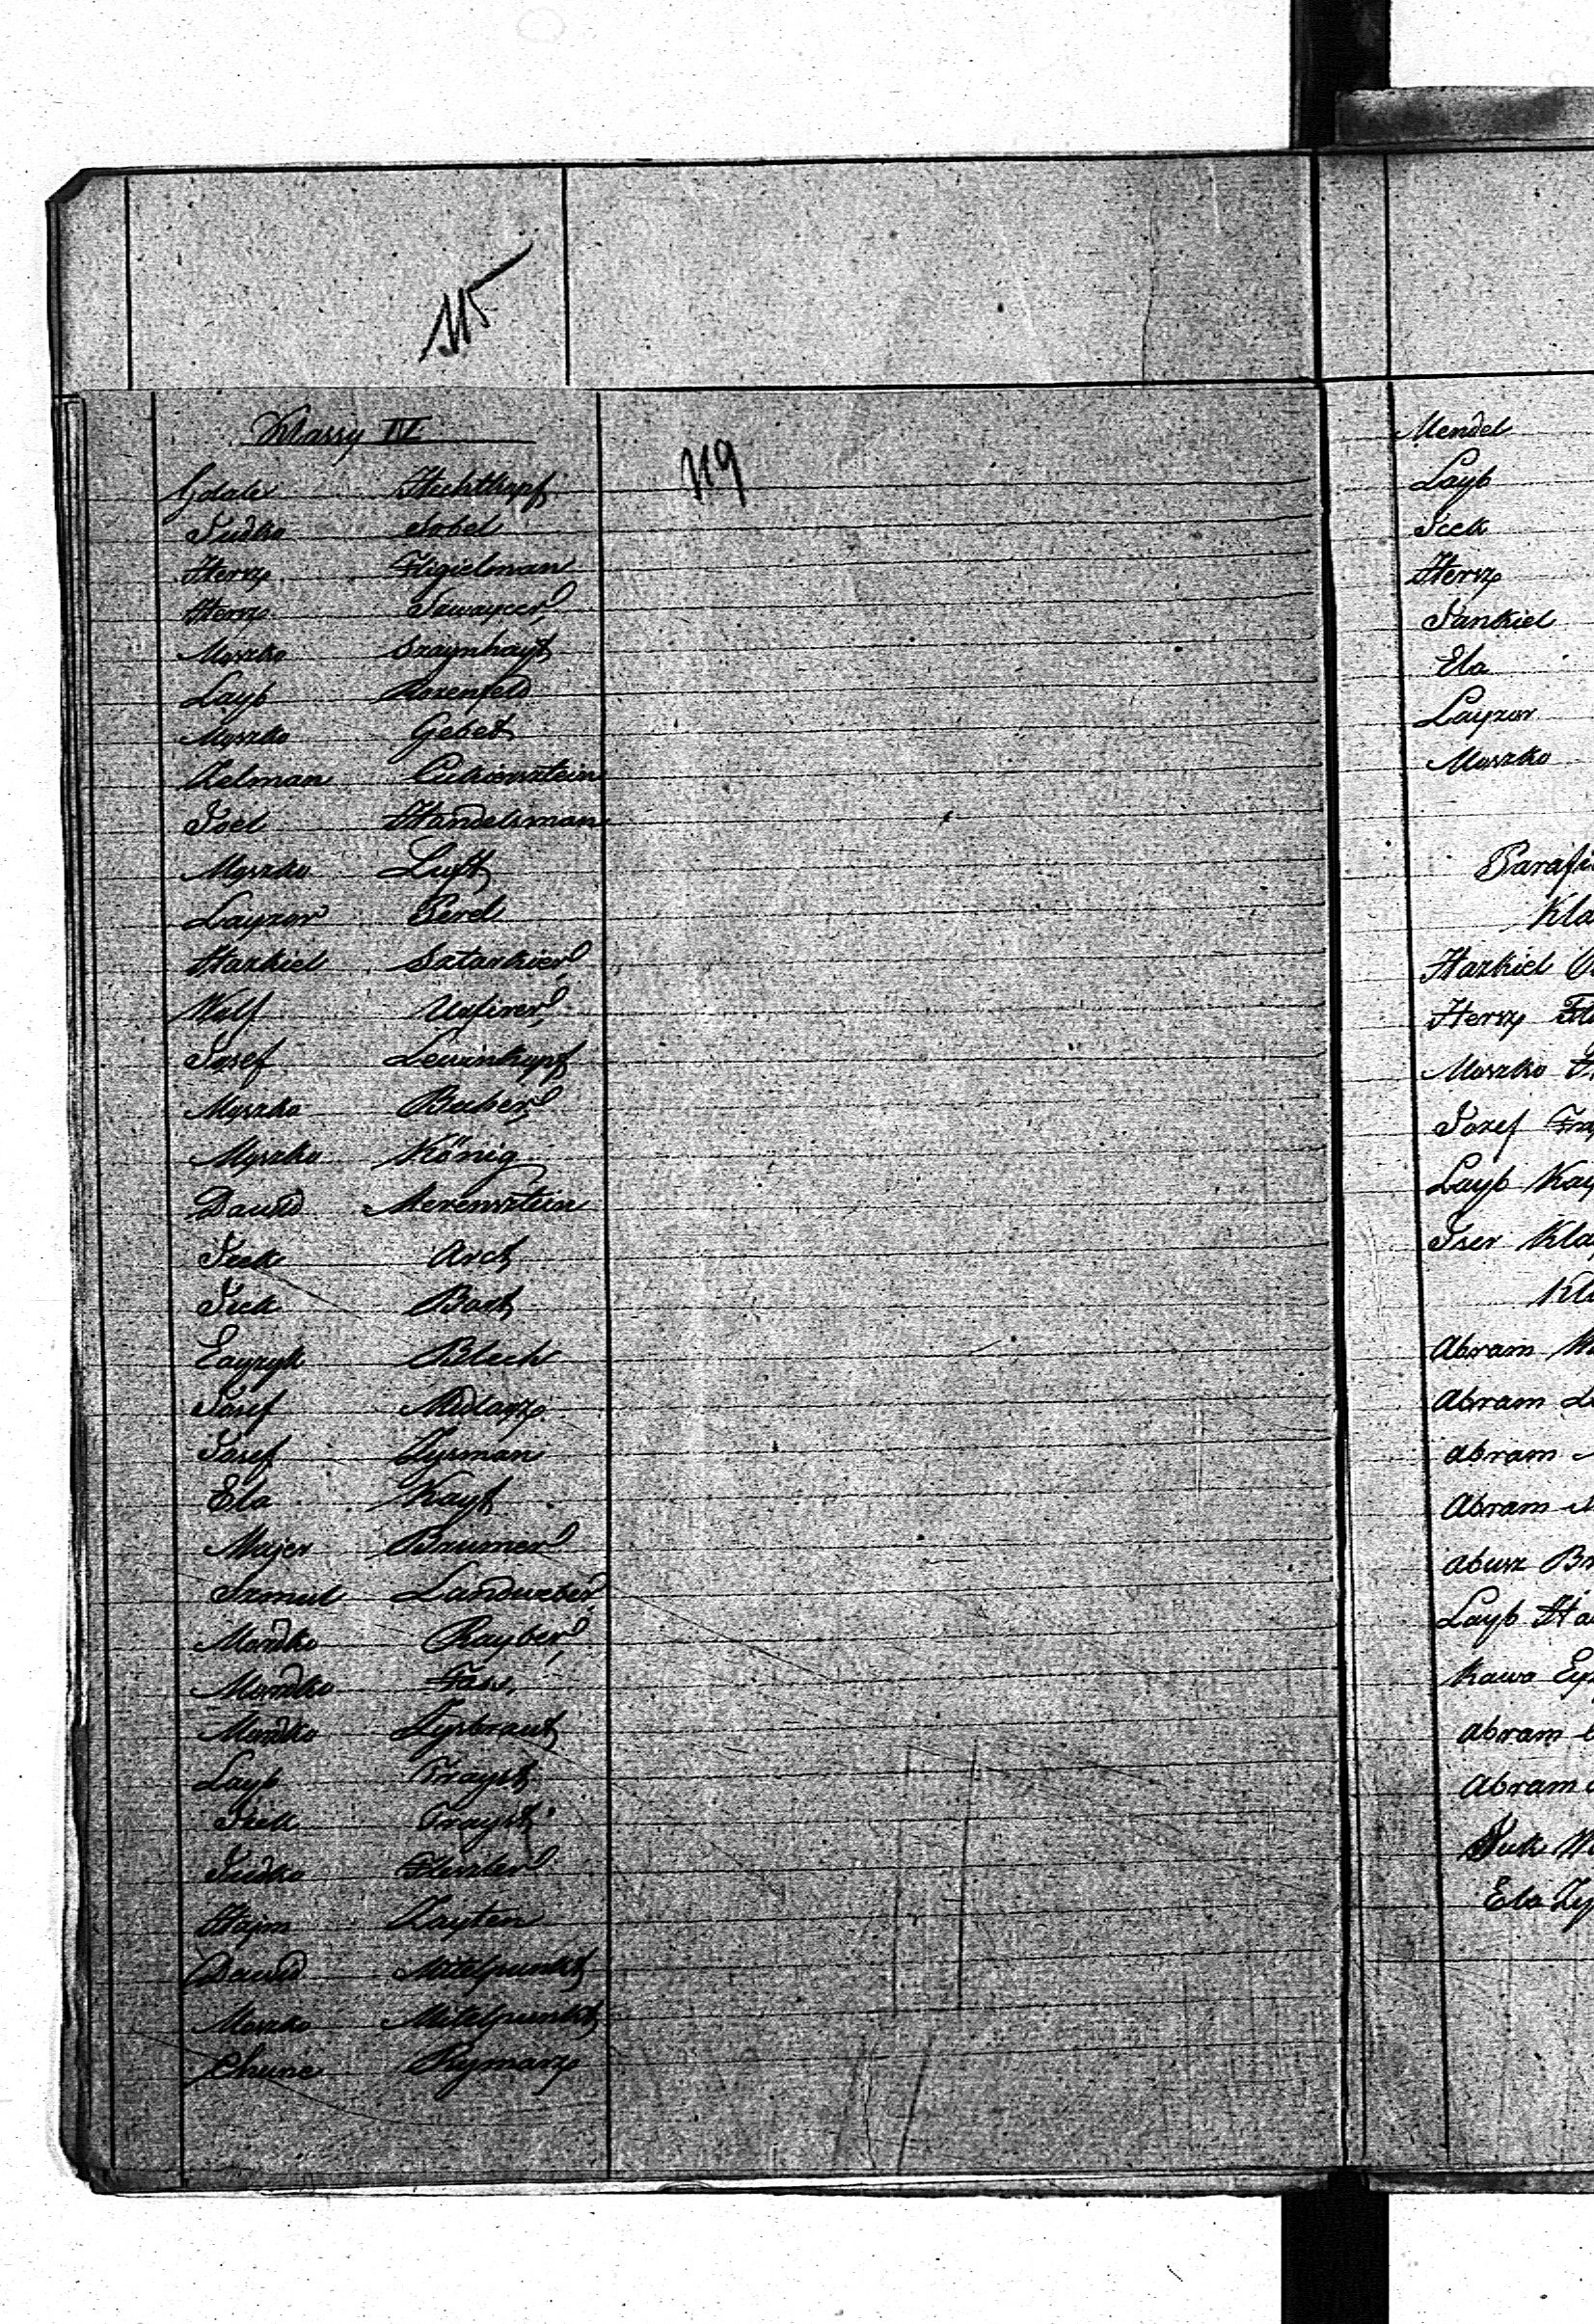 115
Klassy IV
119
Gdaler Hechtkopf
Judko Sobel
Hersz Fligielman
Hersz
Moszko Szaynhayt
Layb Rozenfeld
Moszko Gebet
Zelman Cukiersztein
Joel Handelsman
Moszko Luft
Layzor Perel
Haskiel Sztarkier
Wolf
Josef Lewinkopf
Moszko Buber
Moszko König
Dawid Merensztein
Icek Arch
Icek Bart
Eayzyk Blech
Josef Midlarz
Josef Zysman
Ela Kayt
Majer Brumer
Szmul Landweber
Mordko Rayber
Mordko Fass
Mordko Zysbraut
Layb Trayst
Icek Trayst
Judko
Haim Zayten
Dawid Mitelpunkt
Moszko Mitelpunkt
Chune Rymarz
Mendel
Layb
Icek
Hersz
Jankiel
Ela
Layzor
Moszko
Parafi
Kla
Haskiel
Hersz
Moszko
Jozef
Layb Kay
Iser Kla
Kla
Abram
Abram
Abram
Abram
Abusz
Layb
Kawa
Abram
Abram
Icek
Ela Zy